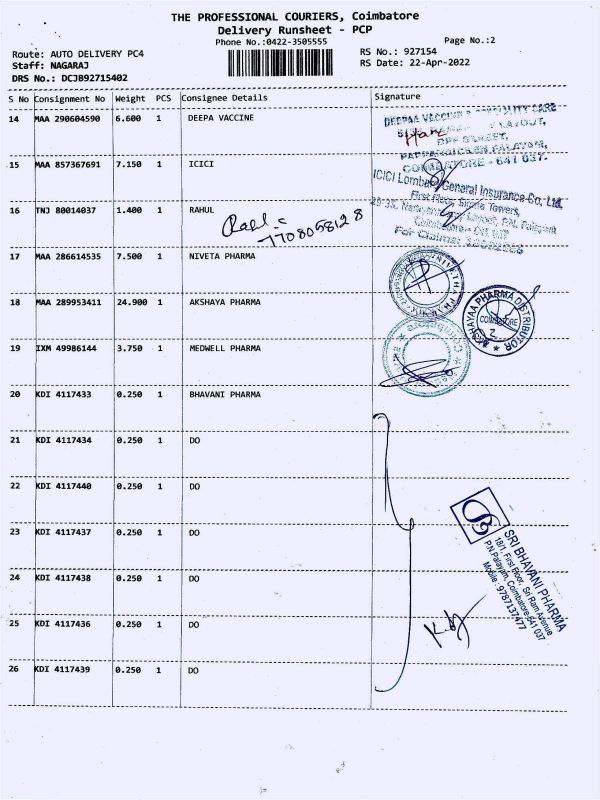 THE PROFESSIONAL COURIERS, Coimbatore
Delivery Runsheet - PCP
Phone No.:0422-3505555
Page No.:2
Route: AUTO DELIVERY PC4
RS No.: 927154
Staff: NAGARAJ
RS Date: 22-Apr-2022
DRS No.: DCJB92715402
S No Consignment No Weight PCS Consignee Details Signature
14 MAA 290604590 6.600 1 DEEPA VACCINE
DEEPAA VACCINE & SPECIALITY CARE
LAYOUT,
PAPPANAICKEN PALAYAM,
COIMBATORE - 641 037.
15 MAA 857367691 7.150 1 ICICI
ICICI Lombard General Insurance Co. Ltd.
First Floor, Towers,
Layout, P.N. Palayam
Coimbatore
For Claims:
16 TNJ 80014037 1.400 1 RAHUL
7708058128
17 MAA 286614535 7.500 1 NIVETA PHARMA
NIVETHA PHARMA
18 MAA 289953411 24.900 1 AKSHAYA PHARMA
AKSHAYAA PHARMA DISTRIBUTOR
COIMBATORE
19 IXM 49986144 3.750 1 MEDWELL PHARMA
Coimbatore
20 KDI 4117433 0.250 1 BHAVANI PHARMA
21 KDI 4117434 0.250 1 DO
22 KDI 4117440 0.250 1 DO
23 KDI 4117437 0.250 1 DO
SRI BHAVANI PHARMA
18/1, First Floor, Sri Ram Avenue
P.N.Palayam, Coimbatore-641 037
Mobile : 9787137477
24 KDI 4117438 0.250 1 DO
25 KDI 4117436 0.250 1 DO
26 KDI 4117439 0.250 1 DO